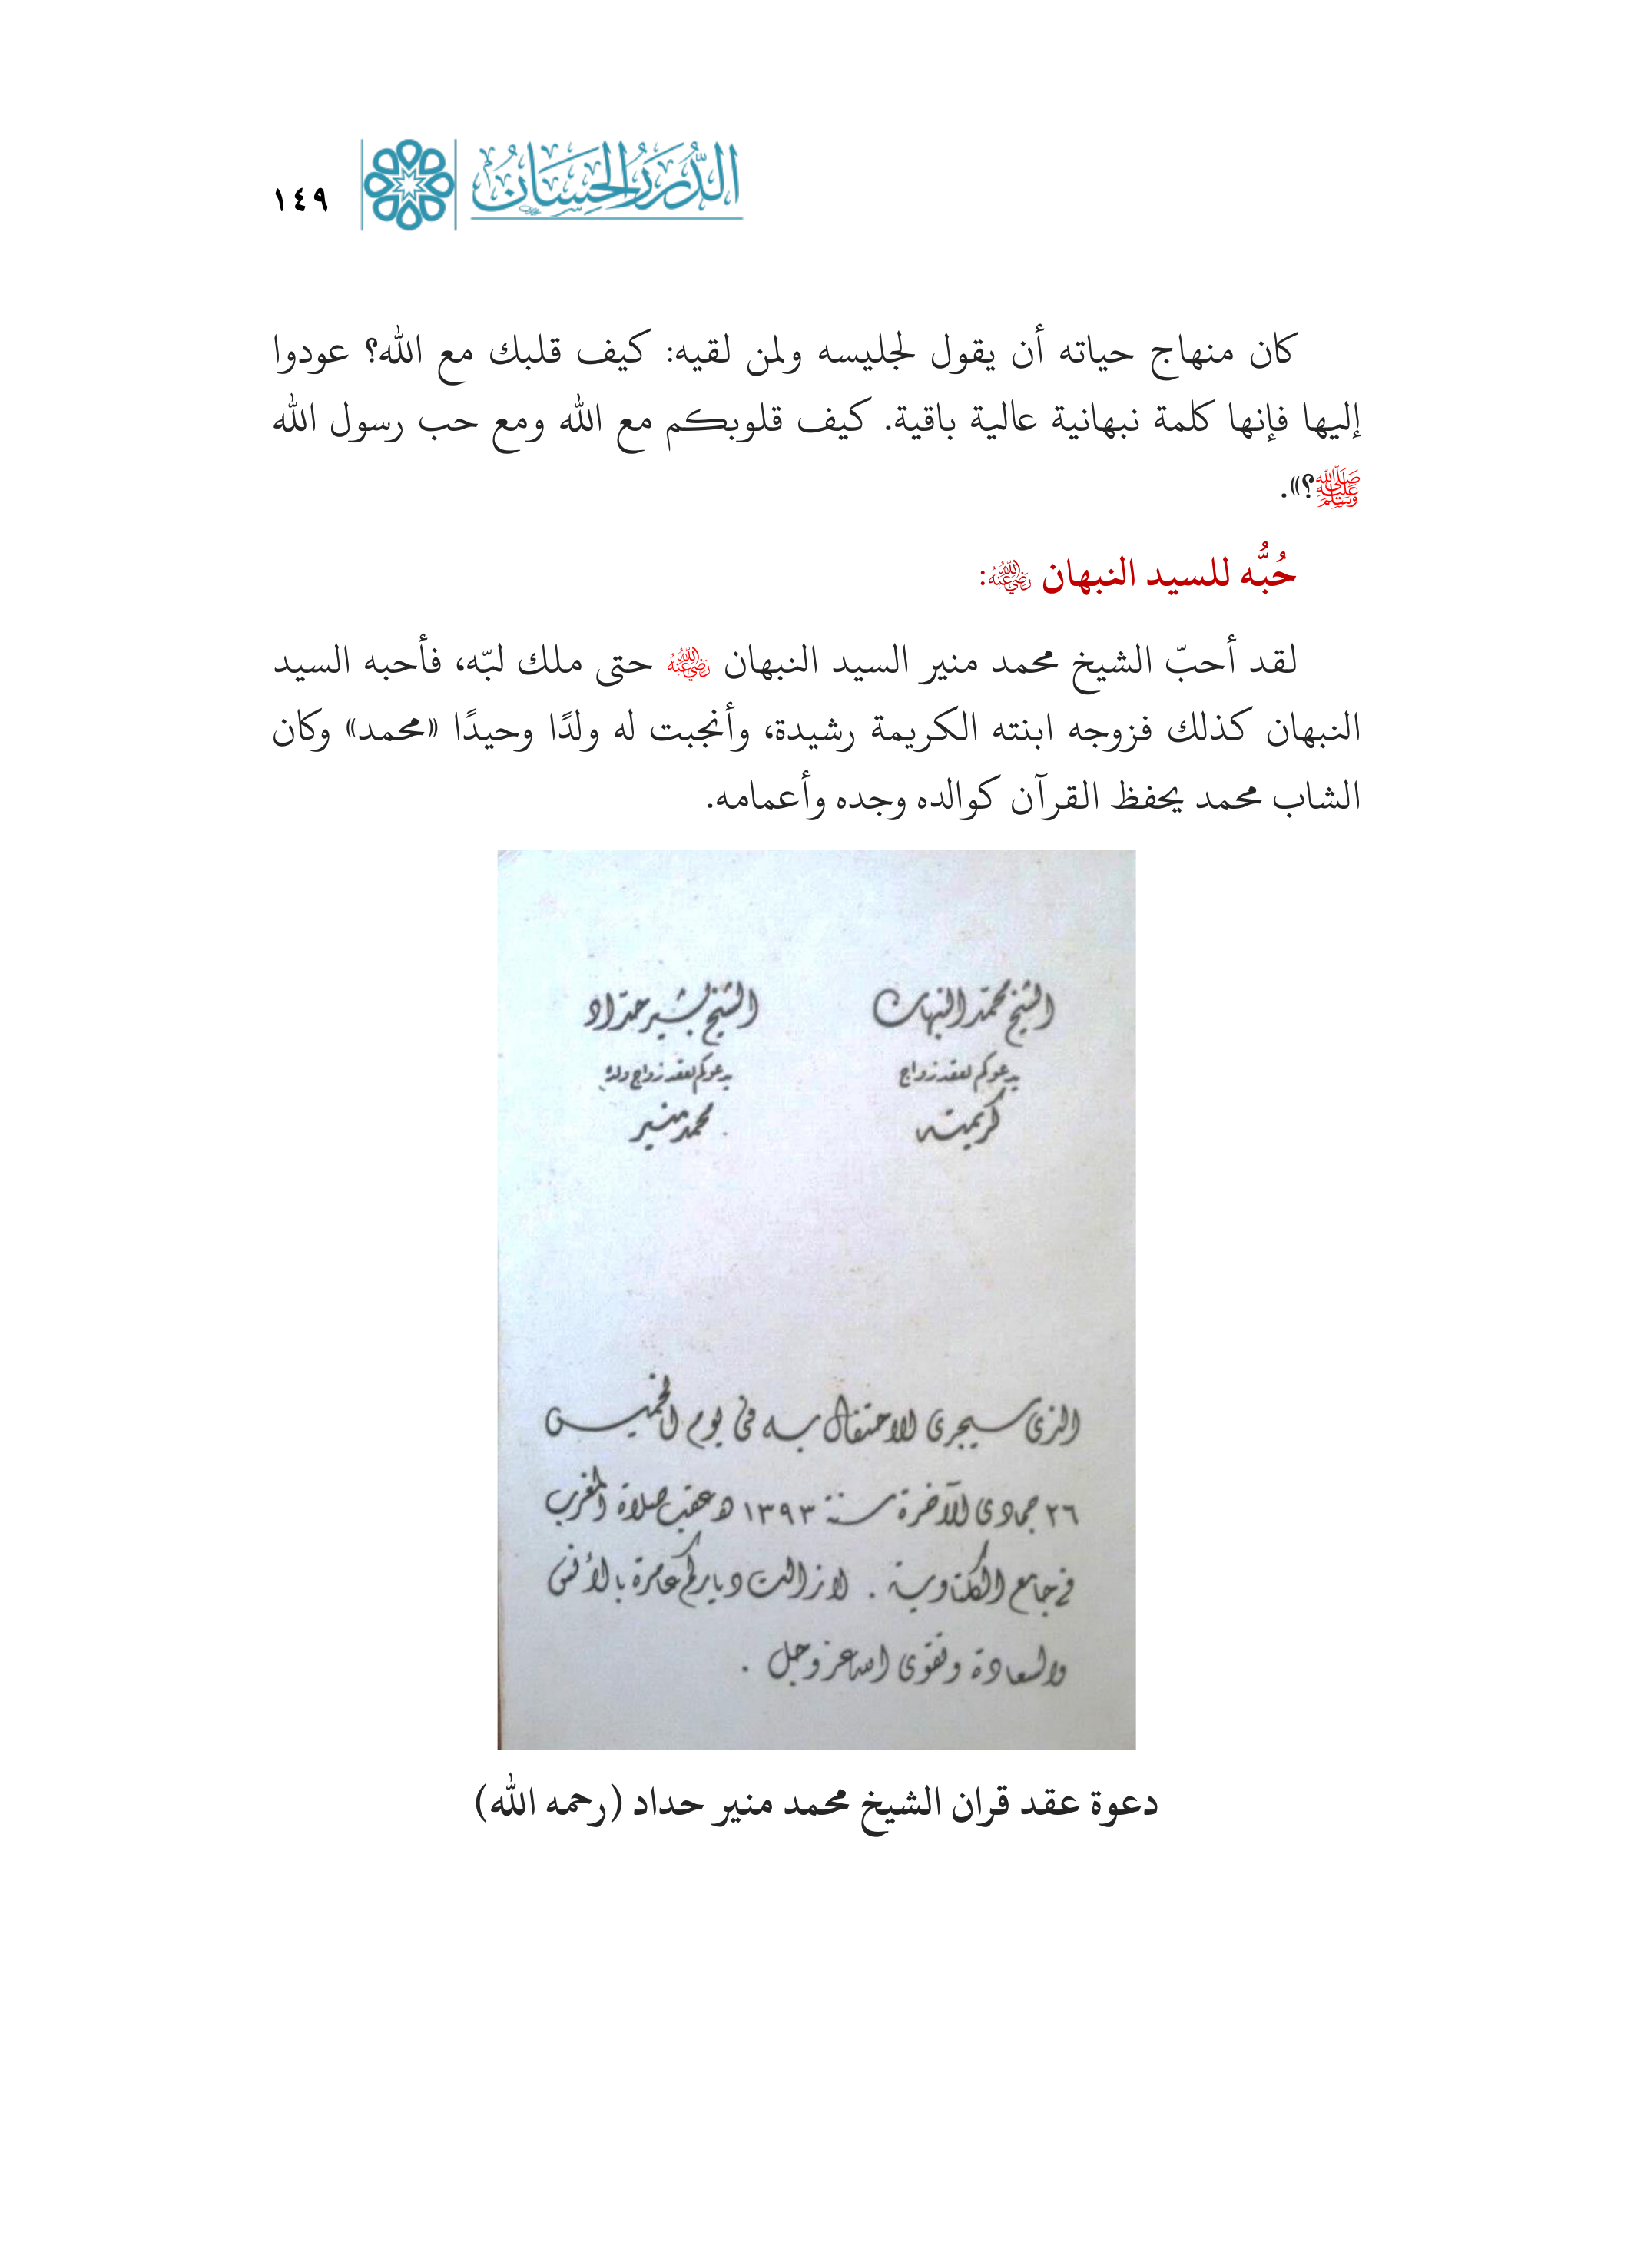 الدُّرَرُ الحِسَانُ
١٤٩
كان منهاج حياته أن يقول لجليسه ولمن لقيه: كيف قلبك مع الله؟ عودوا
إليها فإنها كلمة نبهانية عالية باقية. كيف قلوبكم مع الله ومع حب رسول الله
ﷺ؟».
حُبُّه للسيد النبهان رضي الله عنه:
لقد أحبّ الشيخ محمد منير السيد النبهان رضي الله عنه حتى ملك لبّه، فأحبه السيد
النبهان كذلك فزوجه ابنته الكريمة رشيدة، وأنجبت له ولدًا وحيدًا «محمد» وكان
الشاب محمد يحفظ القرآن كوالده وجده وأعمامه.
الشيخ محمّد النبهان
يدعوكم لعقد زواج
كريمته
الشيخ بشير حدّاد
يدعوكم لعقد زواج ولده
محمد منير
الذي سيجري الاحتفال به في يوم الخميس
٢٦ جمادى الآخرة سنة ١٣٩٣ هـ عقب صلاة المغرب
في جامع الكلتاوية . لازالت دياركم عامرة بالأنس
والسعادة وتقوى الله عز وجل .
دعوة عقد قران الشيخ محمد منير حداد (رحمه الله)